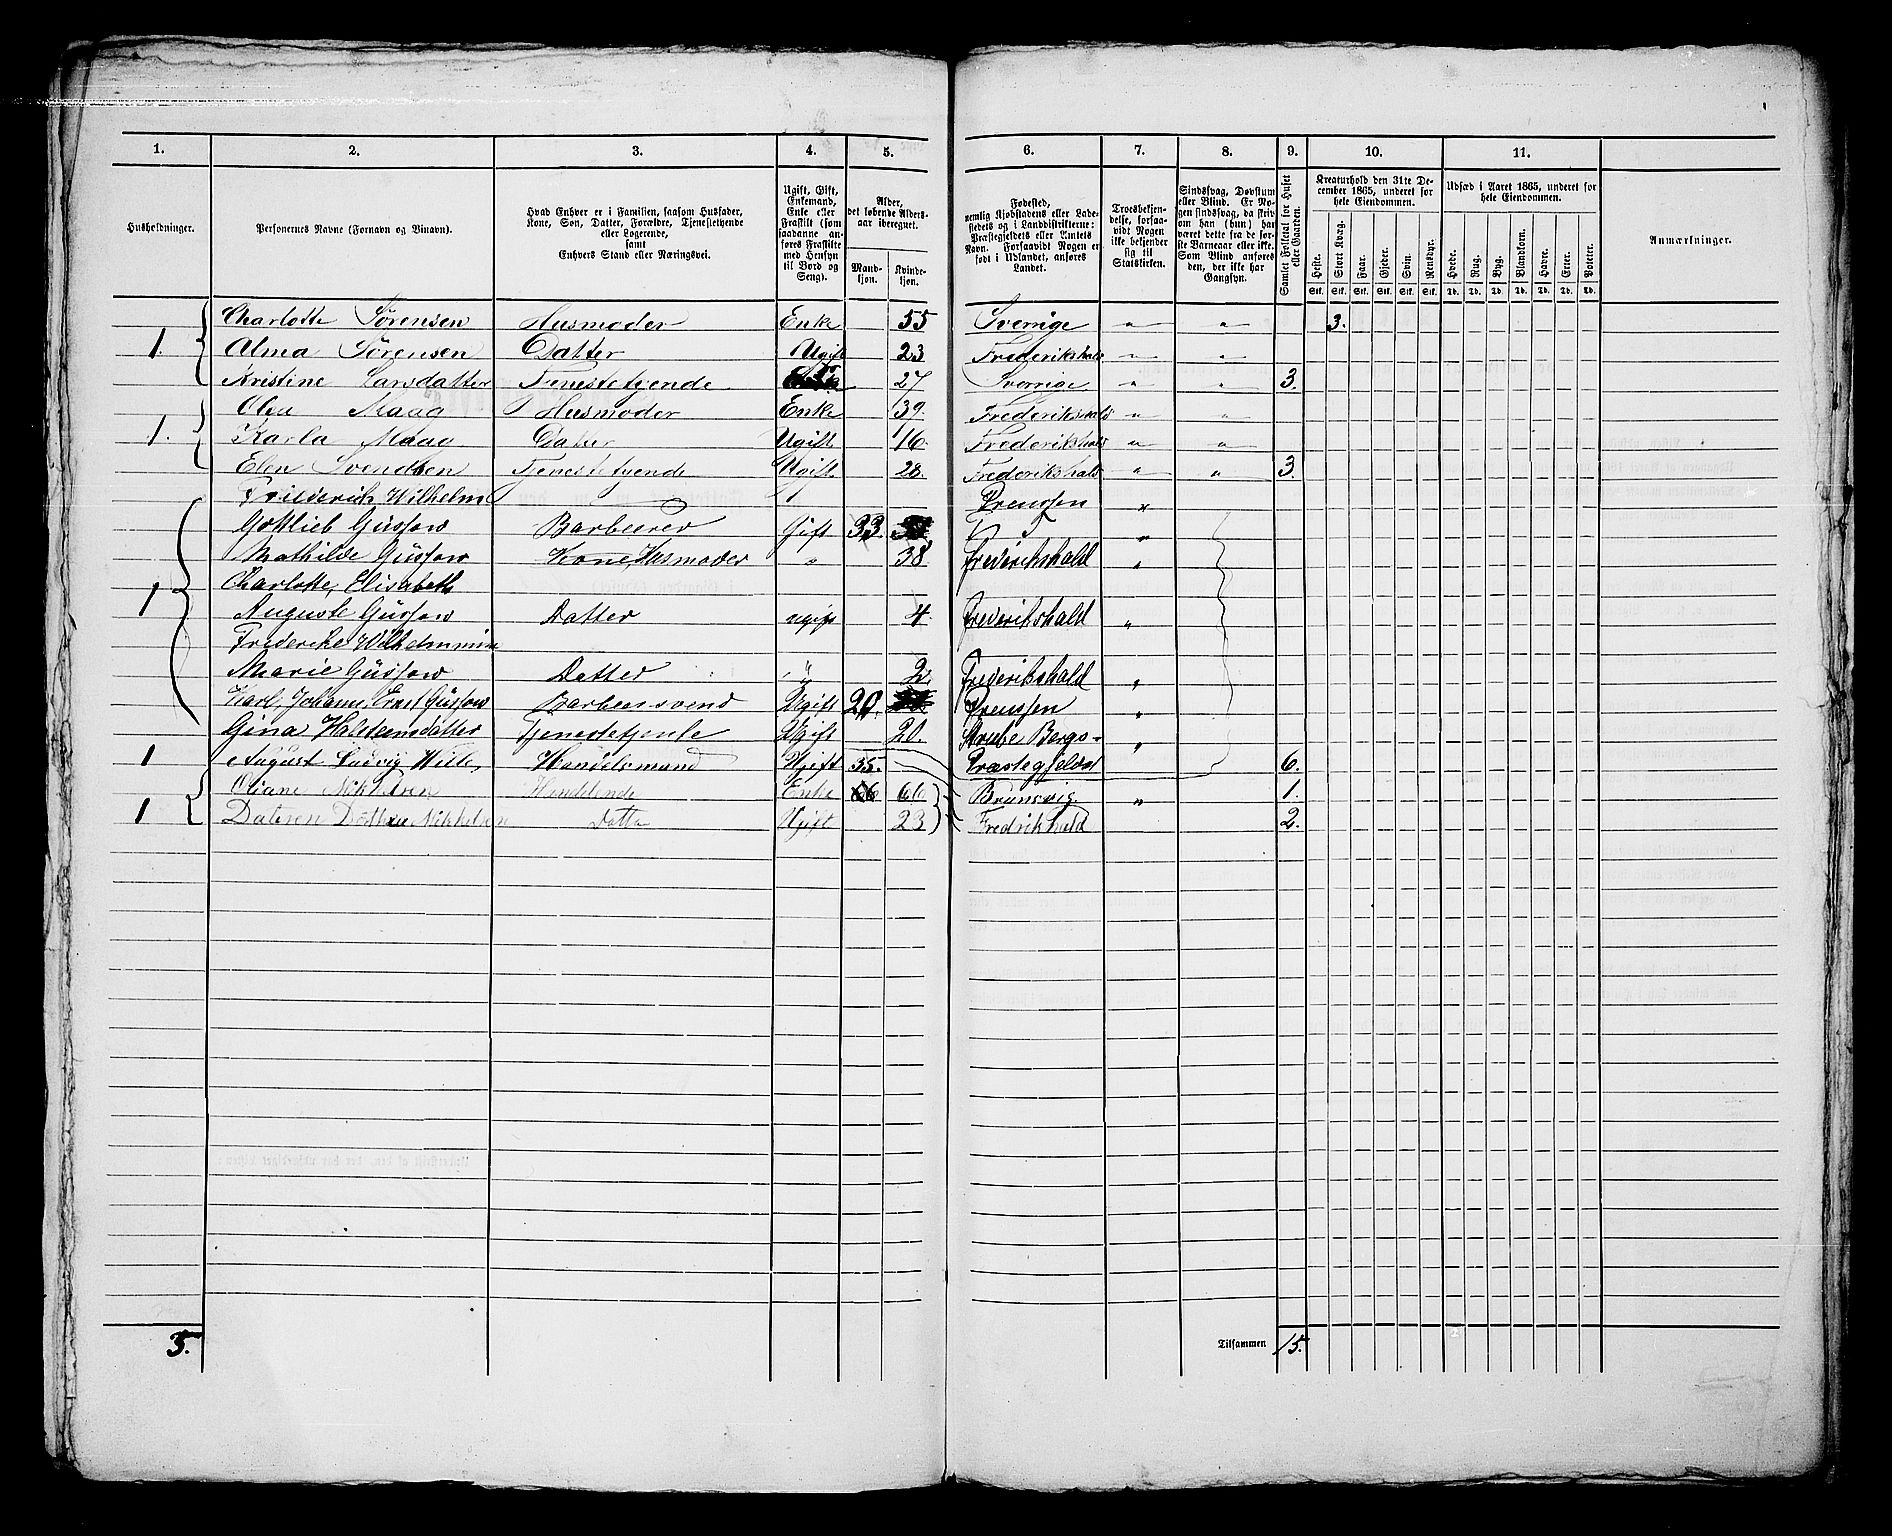 1. 2. 3. 4. 5. 6. 7. 8. 9. 10. 11.
Husholdninger.
Personernes Navne (Fornavn og Binavn).
Hvad Enhver er i Familien, saasom Husfader,
Kone, Søn, Datter, Forældre, Tjenestetyende
eller Logerende,
samt
Enhvers Stand eller Næringsvei.
Ugift, Gift,
Enkemand,
Enke eller
Fraskilt (som
saadanne an-
føres Fraskilte
med Hensyn
til Bord og
Seng).
Alder,
det løbende Alders-
aar iberegnet.
Mand-
kjøn.
Kvinde-
kjøn.
Fødested,
nemlig Kjøbstadens eller Lade-
stedets og i Landdistrikterne:
Præstegjeldets eller Amtets
Navn. Forsaavidt Nogen er
født i Udlandet, anføres
Landet.
Troesbekjen-
delse, forsaa-
vidt Nogen
ikke bekjender
sig til
Statskirken.
Sindssvag, Døvstum
eller Blind. Er No-
gen sindssvag, da skriv
om han (hun) har
været dette fra de før-
ste Barneaar eller ikke.
Som Blind anføres
den, der ikke har
Gangsyn.
Samlet Folketal for Huset
eller Gaarden.
Kreaturhold den 31te De-
cember 1865, underet for
hele Eiendommen.
Heste. Stort Kvæg. Faar. Gjeder. Svin. Rensdyr.
Stk. Stk. Stk. Stk. Stk. Stk.
Udsæd i Aaret 1865, underet for
hele Eiendommen.
Hvede. Rug. Byg. Blandkorn. Havre. Erter. Poteter.
Td. Td. Td. Td. Td. Td. Td.
Anmærkninger.
Charlotte Sørensen Husmoder Enke 55 Sverrige " " 3.
1. Alma Sørensen Datter Ugift 23 Frederikshald " "
Kristine Larsdatter Tjenestetyende 27 Sverrige " " 3.
Olea Maag Husmoder Enke 39. Frederikshald " "
1. Karla Maag Datter Ugift 16. Frederikshald " "
Elen Svendsen Tjenestetyende Ugift 28. Frederikshald " " 3.
Friederich Wilhelm Preussen "
Gottlieb Güssow Barbeerer Gift 33. "
Mathilde Güssow Kone Husmoder " 38 Frederikshald "
Charlotte, Elisabeth
1 Auguste Güssow Datter ugift 4. Frederikshald "
Frederike Wilhelmmine
Marie Güssow Datter " 2. Frederikshald "
Karl, Johann, Ernst Güssow Barbeersvend Ugift 20. Preussen "
Gina Halsteensdatter Tjenestetjente Ugift 20. Bergs- "
1 August Ludvig Wille Handelsmand Ugift 35. Præstegjeld 6.
Oliane Enke 66 Brunsvig " 1.
1 Nikkelsen Datte Ugift 23 Fredrikhald 2.
5. Tilsammen 15.